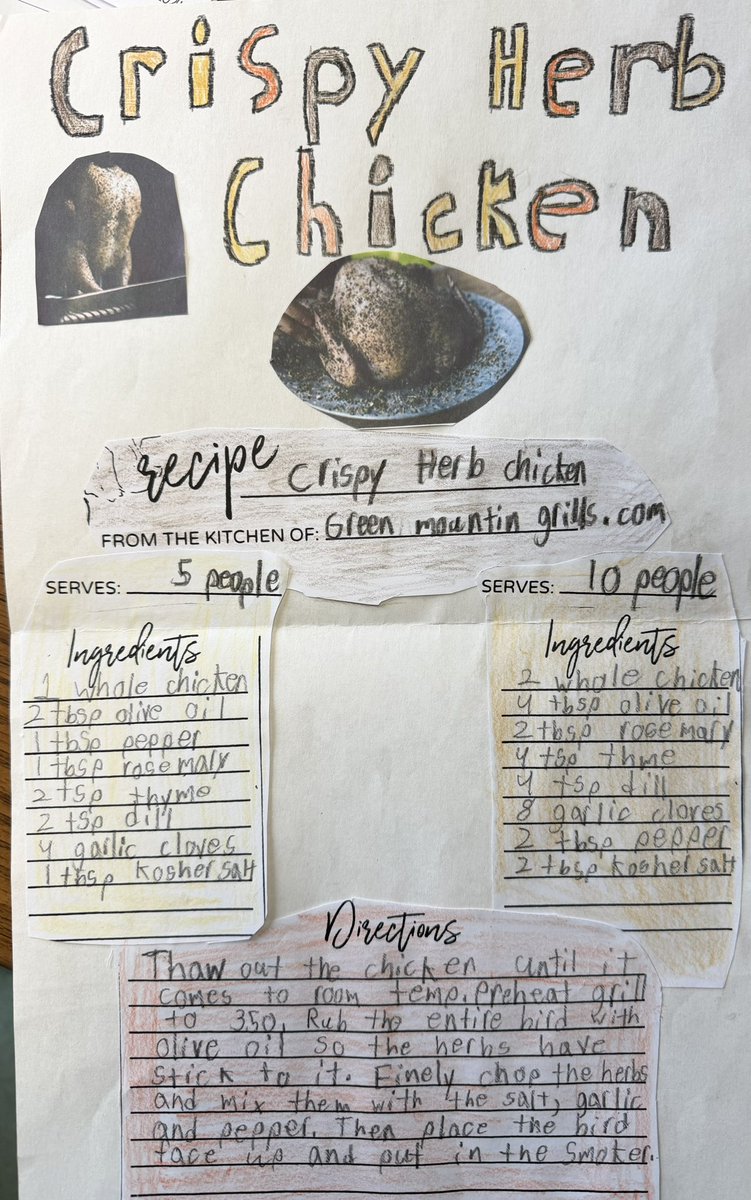 Crispy Herb
Chicken
recipe Crispy Herb chicken
FROM THE KITCHEN OF: Green mountin grills.com
SERVES: 5 people
Ingredients
1 whole chicken
2 tbsp olive oil
1 tbsp pepper
1 tbsp rosemary
2 tsp thyme
2 tsp dill
4 garlic cloves
1 tbsp kosher salt
SERVES: 10 people
Ingredients
2 whole chicken
4 tbsp olive oil
2 tbsp rosemary
4 tsp thme
4 tsp dill
8 garlic cloves
2 tbsp pepper
2 tbsp kosher salt
Directions
Thaw out the chicken until it
comes to room temp. Preheat grill
to 350. Rub the entire bird with
olive oil so the herbs have
stick to it. Finely chop the herbs
and mix them with the salt, garlic
and pepper. Then place the bird
face up and put in the smoker.